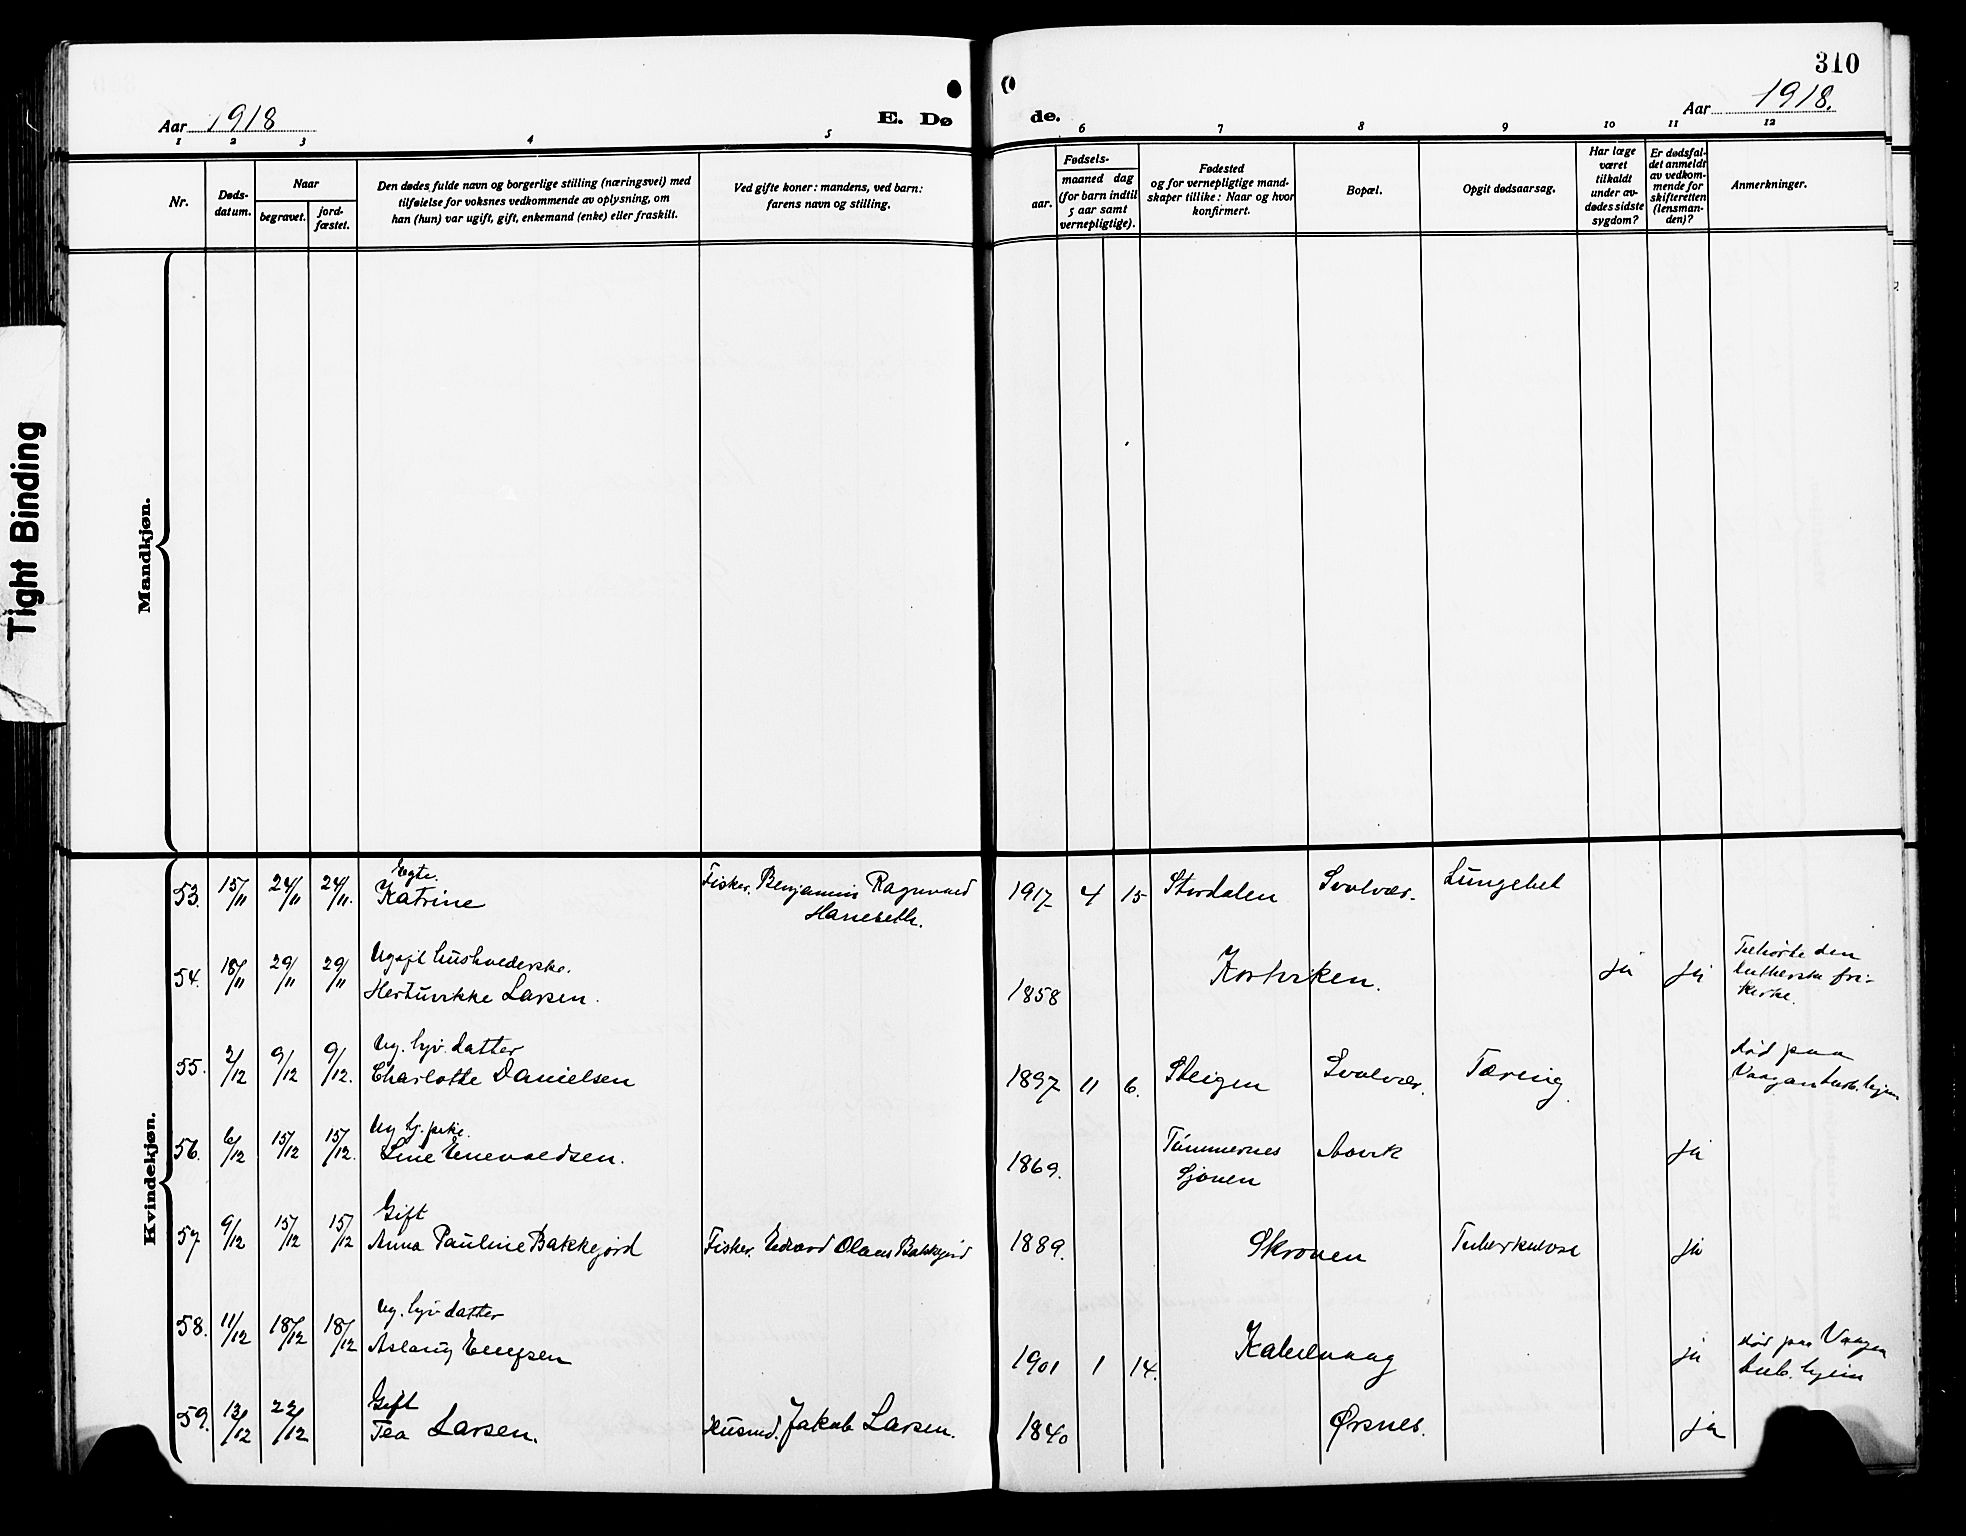 310
Aar 1918
E. Dø
de.
Aar 1918.
1 2 3 4 5 6 7 8 9 10 11 12
Nr.
Døds-
datum.
Naar
begravet.
jord-
fæstet.
Den dødes fulde navn og borgerlige stilling (næringsvei) med
tilføielse for voksnes vedkommende av oplysning, om
han (hun) var ugift, gift, enkemand (enke) eller fraskilt.
Ved gifte koner: mandens, ved barn:
farens navn og stilling.
Fødsels-
aar.
maaned dag
(for barn indtil
5 aar samt
vernepligtige).
Fødested
og for vernepligtige mand-
skaper tillike: Naar og hvor
konfirmert.
Bopæl.
Opgit dødsaarsag.
Har læge
været
tilkaldt
under av-
dødes sidste
sygdom?
Er dødsfal-
det anmeldt
av vedkom-
mende for
skifteretten
(lensman-
den)?
Anmerkninger.
Tight Binding
Mandkjøn.
Kvindekjøn.
Egte.
53. 15/11 24/11 24/11. Katrine Fisker. Benjamin Ragnvald
Haneseth. 1917 4 15 Stordalen Svolvær. Lungebet
Ugift husholderske.
54. 18/11 29/11 29/11 Hertuvikke Larsen. 1858 Kortviken. ja ja Tilhørte den
lutherske fri-
kirke.
Ug. hjv. datter
55. 2/12 9/12 9/12. Charlotte Danielsen 1897 11 6. Steigen Svolvær. Tæring død paa
Vaagan tub. hjem
Ug. tj. pike.
56. 6/12 15/12 15/12. Line Enevoldsen. 1869. Tømmernes Aavik ja
Sjonen
Gift
57 9/12 15/12 15/12 Anna Pauline Bakkejord Fisker. Edvard Olaus Bakkejord 1889. Skroven Tuberkulose ja
Ug. hjv. datter
58. 11/12 18/12 18/12 Aslaug 1901 1 14. Kabelvaag ja død paa Vaagan
tub. hjem
Gift
59. 13/12 22/12 Tea Larsen. Husmd. Jakob Larsen. 1840 Ørsnes. ja